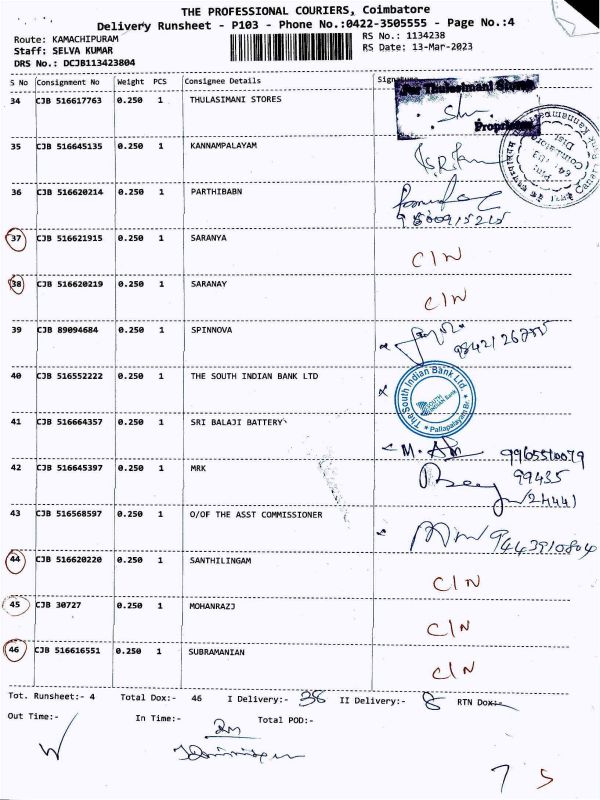 THE PROFESSIONAL COURIERS, Coimbatore
Delivery Runsheet - P103 - Phone No.:0422-3505555 - Page No.:4
Route: KAMACHIPURAM RS No.: 1134238
Staff: SELVA KUMAR RS Date: 13-Mar-2023
DRS No.: DCJB113423804
S No Consignment No Weight PCS Consignee Details Signature
For Thulasimani Stores
34 CJB 516617763 0.250 1 THULASIMANI STORES
Proprietor
35 CJB 516645135 0.250 1 KANNAMPALAYAM
36 CJB 516620214 0.250 1 PARTHIBABN
37 CJB 516621915 0.250 1 SARANYA C/N
38 CJB 516620219 0.250 1 SARANAY C/N
39 CJB 89094684 0.250 1 SPINNOVA
40 CJB 516552222 0.250 1 THE SOUTH INDIAN BANK LTD
The South Indian Bank Ltd.
SOUTH INDIAN Bank
Pallapalayam Br.
41 CJB 516664357 0.250 1 SRI BALAJI BATTERY
9965510079
42 CJB 516645397 0.250 1 MRK 99435
24441
43 CJB 516568597 0.250 1 O/OF THE ASST COMMISSIONER
9443910804
44 CJB 516620220 0.250 1 SANTHILINGAM C/N
45 CJB 30727 0.250 1 MOHANRAZJ C/N
46 CJB 516616551 0.250 1 SUBRAMANIAN C/N
Tot. Runsheet:- 4 Total Dox:- 46 I Delivery:- 38 II Delivery:- 8 RTN Dox:-
Out Time:- In Time:- Total POD:-
7 5